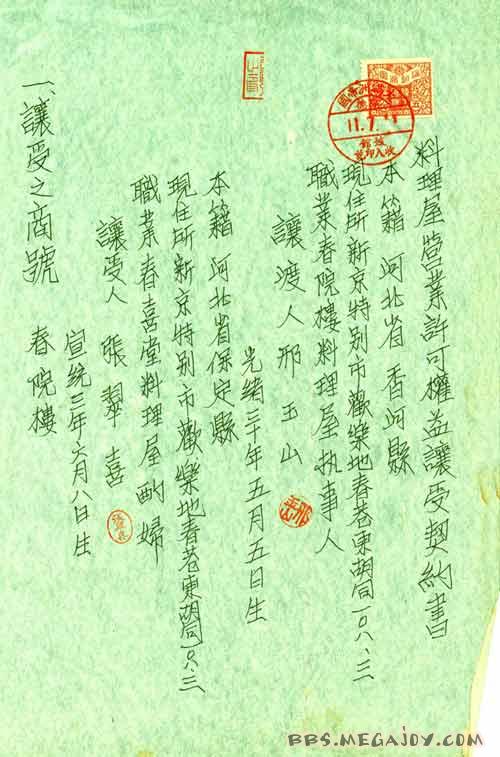 料理屋營業許可權益讓受契約書
本籍 河北省香河縣
現住所新京特別市歡樂地春巷東胡同一〇八、三
職業春院樓料理屋执事人
讓渡人邢玉山
光緒三十年五月五日生
本籍 河北省保定縣
現住所新京特別市歡樂地春巷東胡同一〇八、三
職業春喜堂料理屋酌婦
讓受人 張翠喜
宣統三年六月八日生
一、讓受之商號 春院樓
11.7.
收入印
BBS.MEGAJOY.COM